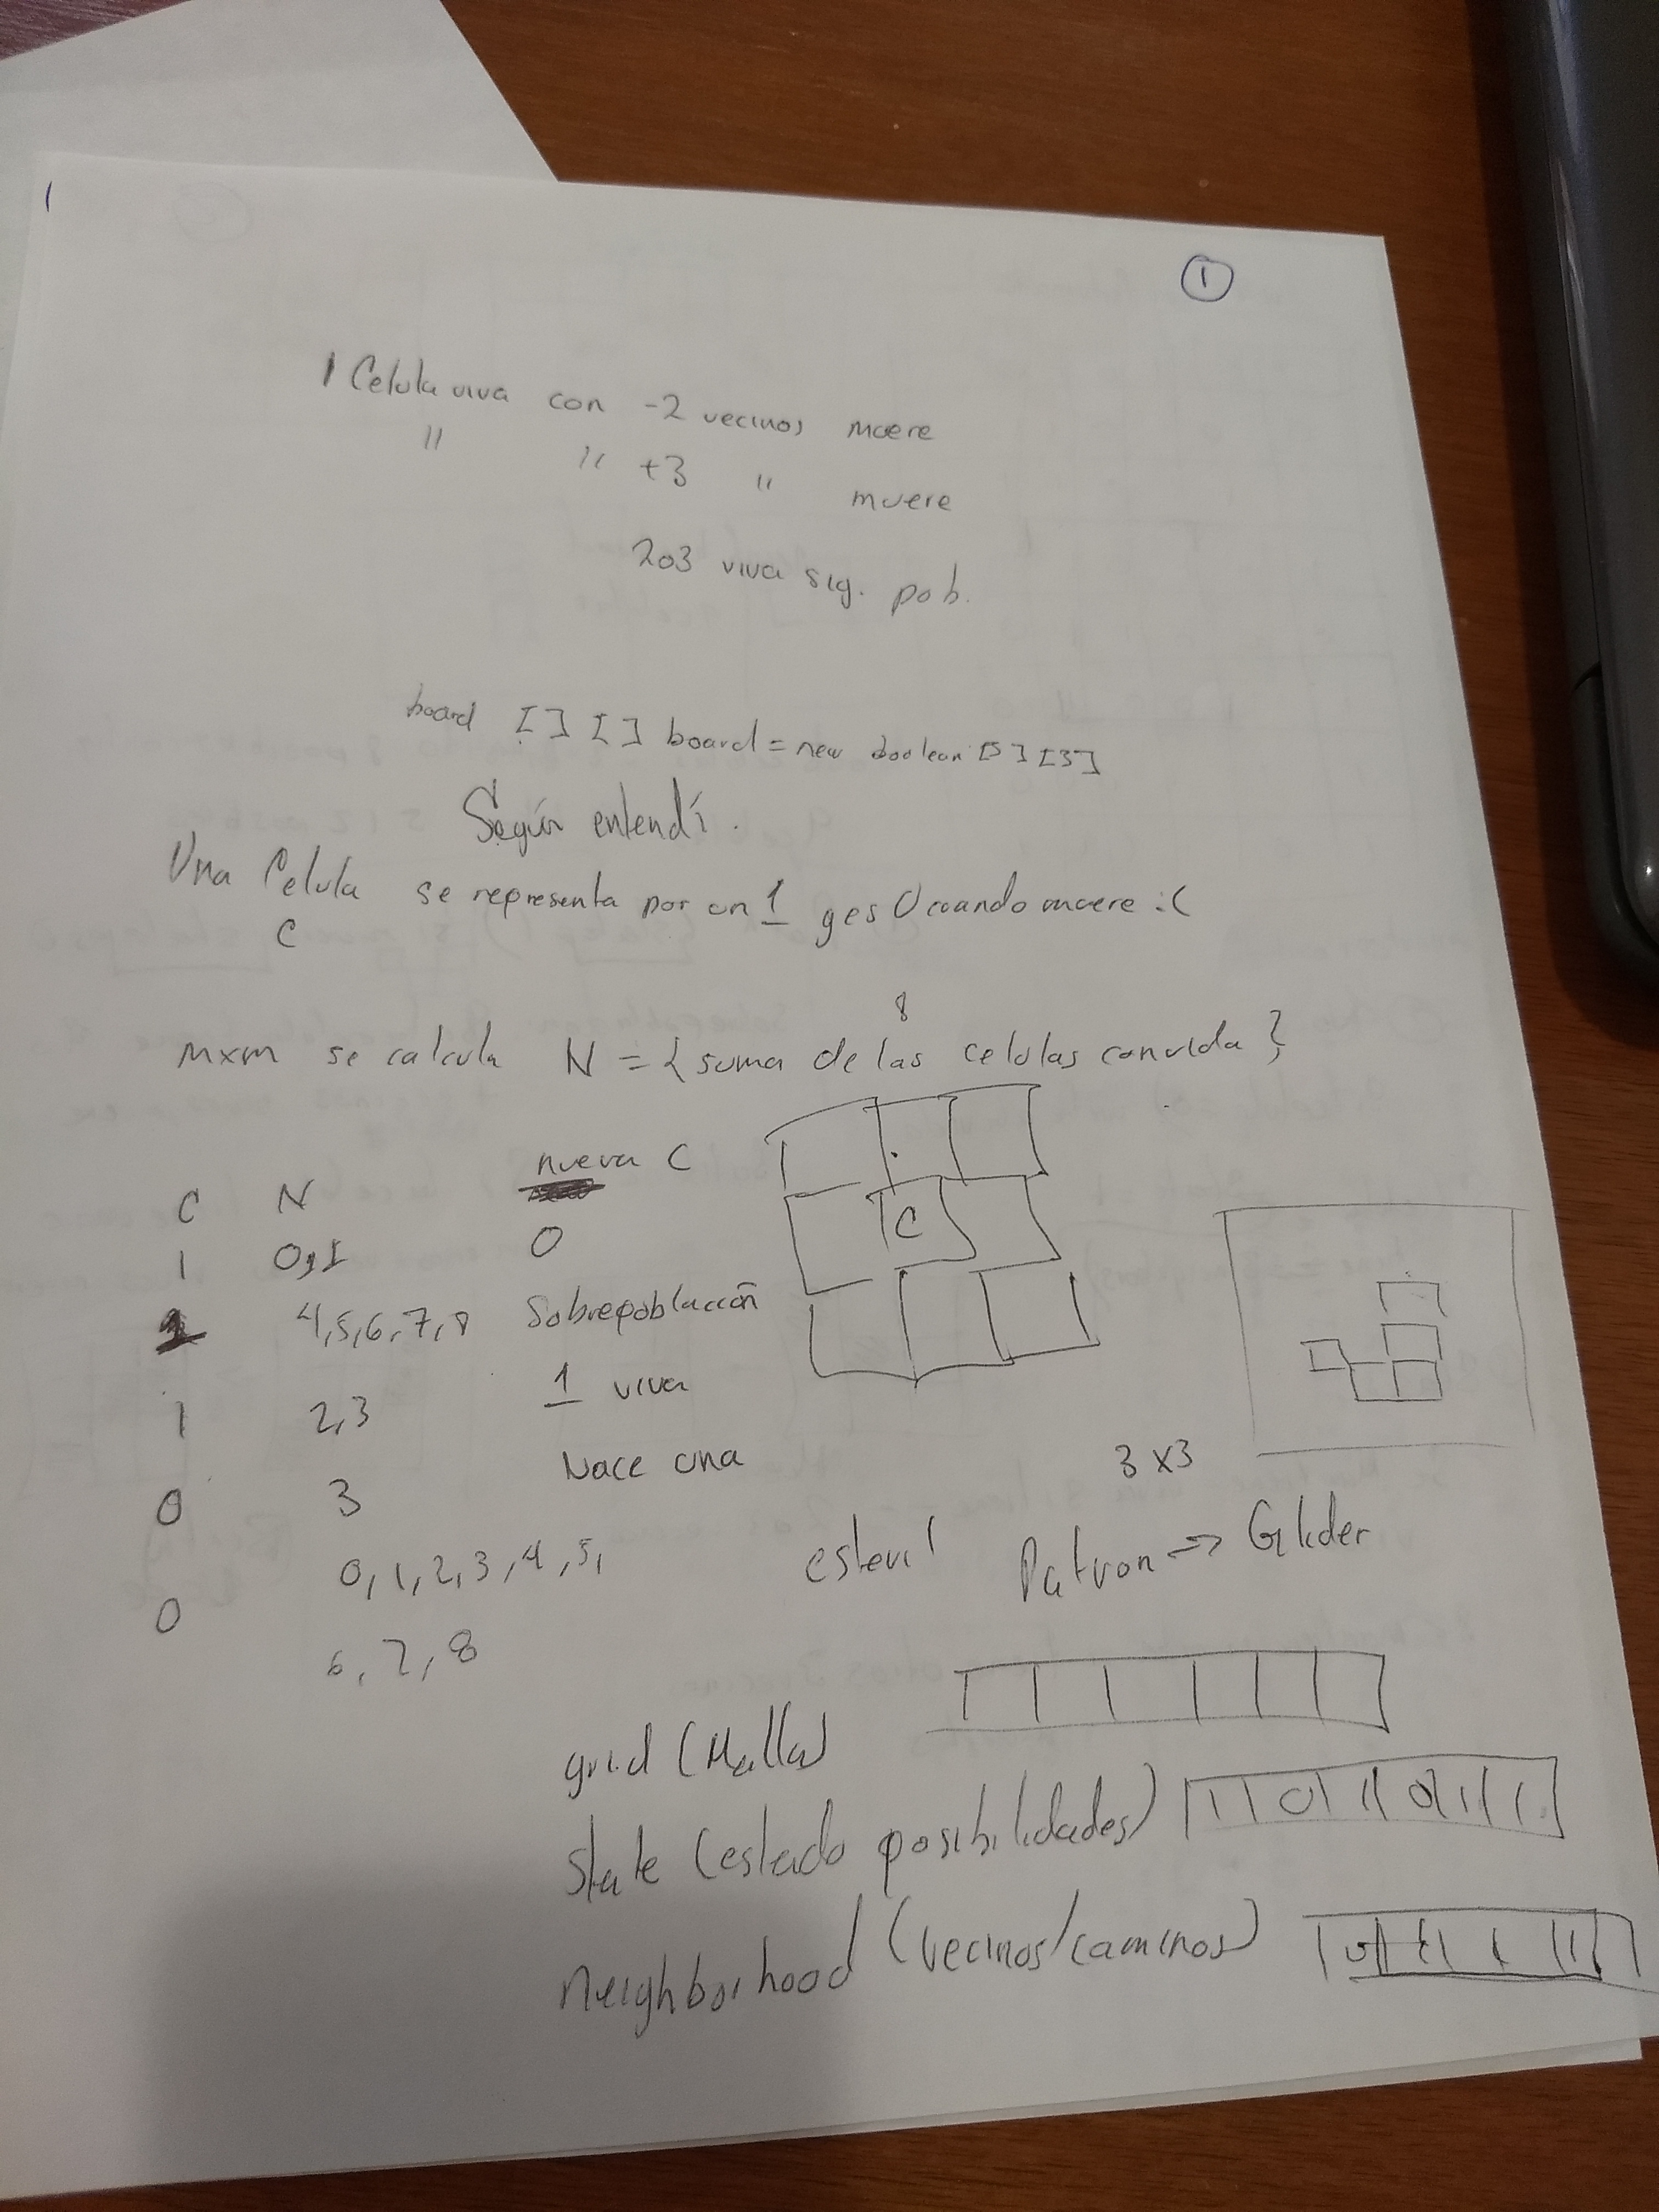 1
1 Celula viva con -2 vecinos muere
" " +3 " muere
2o3 viva sig. pob.
board [][] board = new boolean [5][3]
Según entendí.
Una Celula se representa por un 1 y es 0 cuando muere :(
C
8
mxm se calcula N = { suma de las celulas con vida }
C N nueva C
1 0,1 0
1 4,5,6,7,8 Sobrepoblación
1 2,3 1 viva
0 3 Nace una
0 0,1,2,3,4,5, esteril
6,7,8
C
3x3
Patron => Glider
grid (Malla)
State (estado posibilidades)
neighborhood (vecinos/caminos)